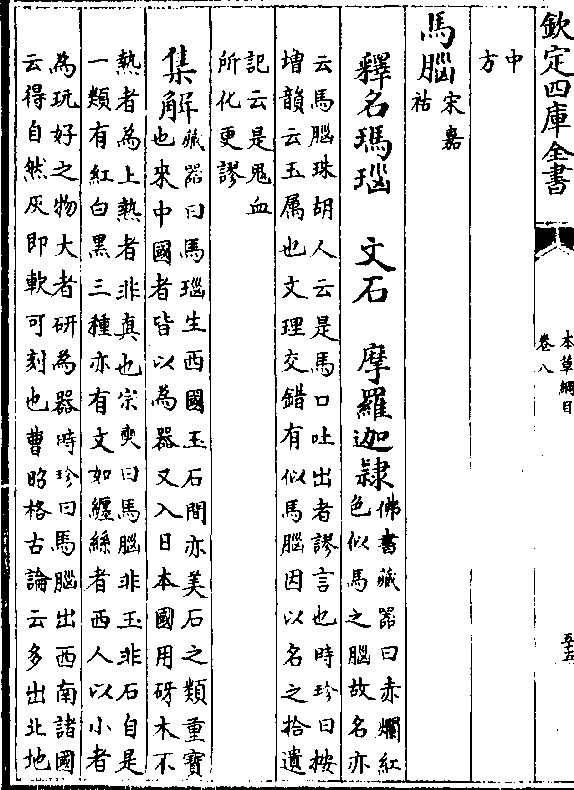 欽定四庫全書
本草綱目
卷八
五十五
中
方
馬腦宋嘉
祐
釋名瑪瑙 文石 摩羅迦隸佛書藏器曰赤爛紅
色似馬之腦故名亦
云馬腦珠胡人云是馬口吐出者謬言也時珍曰按
增韻云玉屬也文理交錯有似馬腦因以名之拾遺
記云是鬼血
所化更謬
集解藏器曰馬瑙生西國玉石間亦美石之類重寶
也來中國者皆以為器又入日本國用砑木不
熱者為上熱者非真也宗奭曰馬腦非玉非石自是
一類有紅白黑三種亦有文如纏絲者西人以小者
為玩好之物大者研為器時珍曰馬腦出西南諸國
云得自然灰即軟可刻也曹昭格古論云多出北地